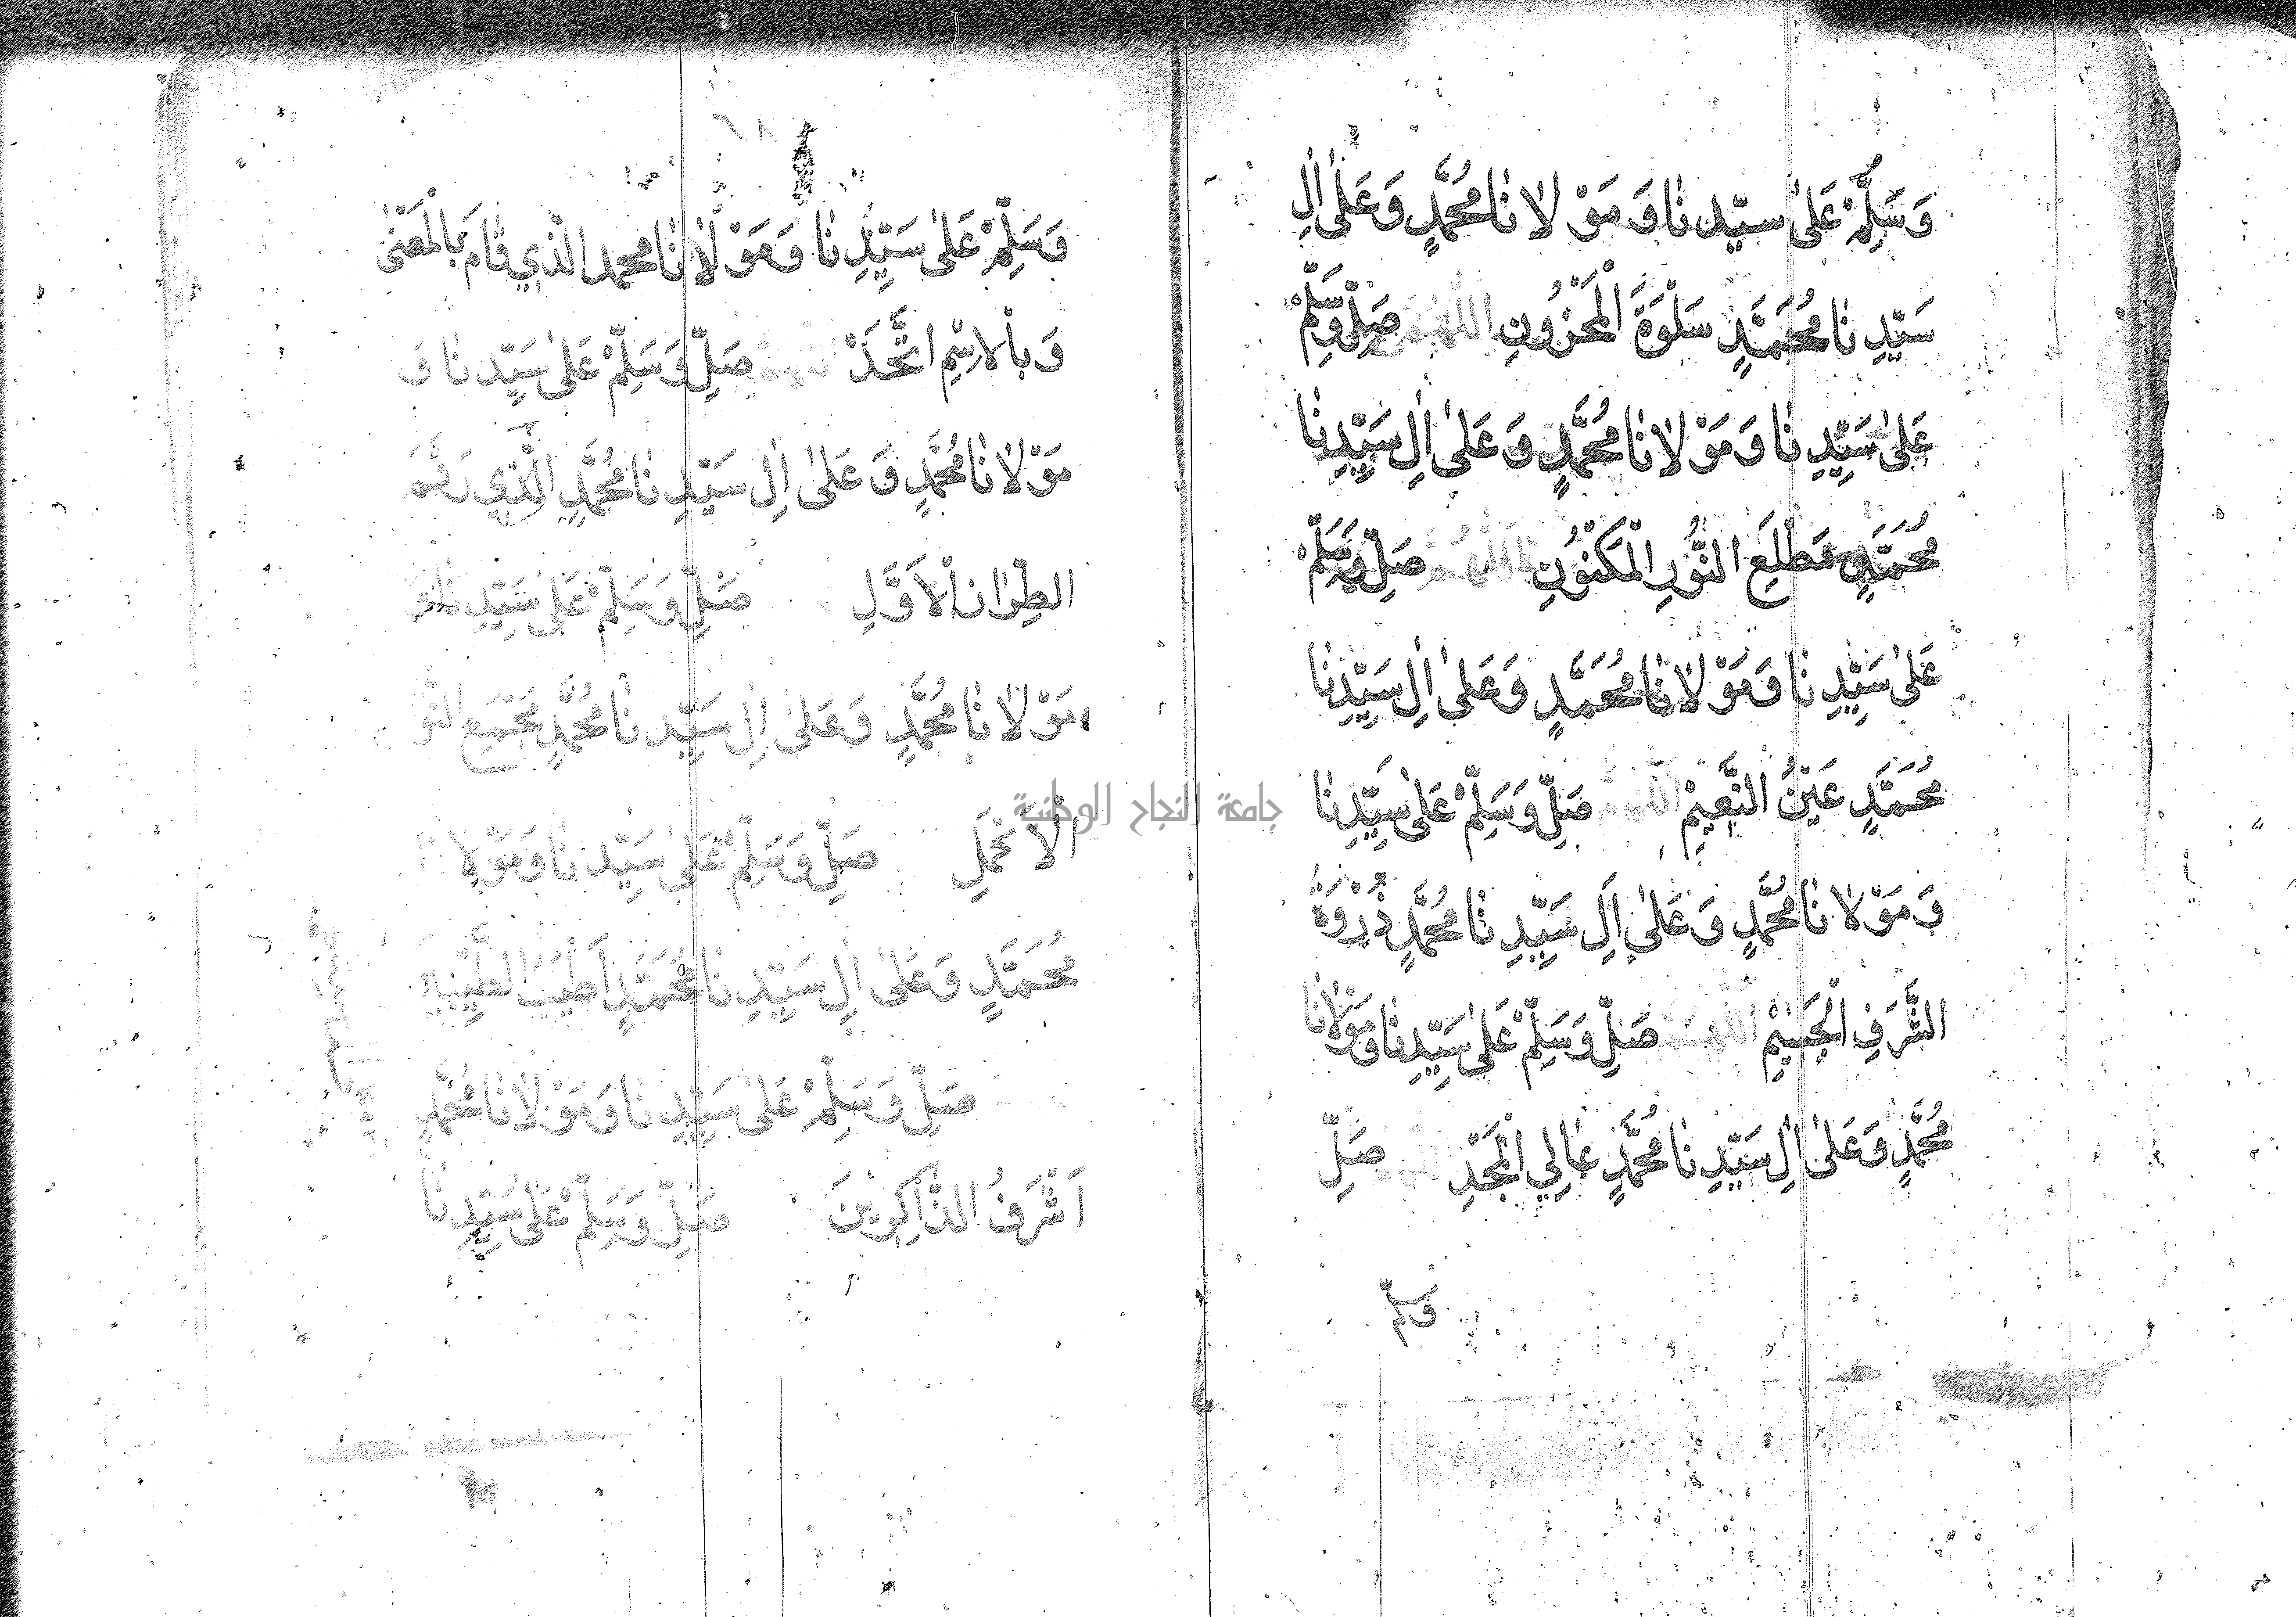 وَسَلِّمْ عَلٰى سيّدِنٰا وَ مَوْلٰانٰا مُحَمَّدٍ وَعَلٰى اٰلِ
سَيّدِنٰا مُحَمَّدٍ سَلْوَةَ الْمَحْزُونِ اللّٰهُمَّ صَلِّ وَسَلِّمْ
عَلٰى سَيِّدِنٰا وَ مَوْلٰانٰا مُحَمَّدٍ وَ عَلٰى اٰلِ سَيِّدِنٰا
مُحَمَّدٍ مَطْلَعِ النُّورِ الْمَكْنُونِ اللّٰهُمَّ صَلِّ وَسَلِّمْ
عَلٰى سَيِّدِنٰا وَ مَوْلٰانٰا مُحَمَّدٍ وَعَلٰى اٰلِ سَيِّدِنٰا
مُحَمَّدٍ عَيْنُ النَّعِيْمْ اللّٰهُمَّ صَلِّ وَسَلِّمْ عَلٰى سَيِّدِنٰا
وَ مَوْلٰانٰا مُحَمَّدٍ وَ عَلٰى اٰلِ سَيِّدِنٰا مُحَمَّدٍ ذُرْوَةُ
الشَّرَفِ الْجَسِيْمِ اللّٰهُمَّ صَلِّ وَسَلِّمْ عَلٰى سَيِّدِنٰا وَمَوْلٰانٰا
مُحَمَّدٍ وَعَلٰى اٰلِ سَيِّدِنٰا مُحَمَّدٍ عٰالِي الْمَجْدِ اللّٰهُمَّ صَلِّ
وسلّم
٦٨
وَسَلِّمْ عَلٰى سَيِّدِنٰا وَمَوْلٰانٰا محمد الّذي قٰامَ بَالْمَعْنٰى
وَبالاسْمِ اتَّحَدْ صَلِّ وَسَلِّمْ عَلٰى سَيِّدِنٰا وَ
مَوْلٰانٰا مُحَمَّدٍ وَ عَلٰى اٰلِ سَيِّدِنٰا مُحَمَّدٍ الَّذي رَقْمَ
الطِّرٰازِ الْاَوَّلِ صَلِّ وَسَلِّمْ عَلٰى سَيِّدِنٰا وَ
مَوْلٰانٰا مُحَمَّدٍ وَعَلٰى اٰلِ سَيِّدِنٰا مُحَمَّدٍ مَجْمَعِ النّو
الْاَكْمَلِ صَلِّ وَسَلِّمْ عَلٰى سَيِّدِنٰا وَمَوْلٰانٰا
مُحَمَّدٍ وَعَلٰى اٰلِ سَيِّدِنٰا مُحَمَّدٍ اَطْيَبُ الطَّيِّبِينَ
صَلِّ وَسَلِّمْ عَلٰى سَيِّدِنٰا وَمَوْلٰانٰا مُحَمَّدٍ
اَشْرَفُ الذّٰاكِرِينَ صَلِّ وَسَلِّمْ عَلٰى سَيِّدِنٰا
جامعة النجاح الوطنية